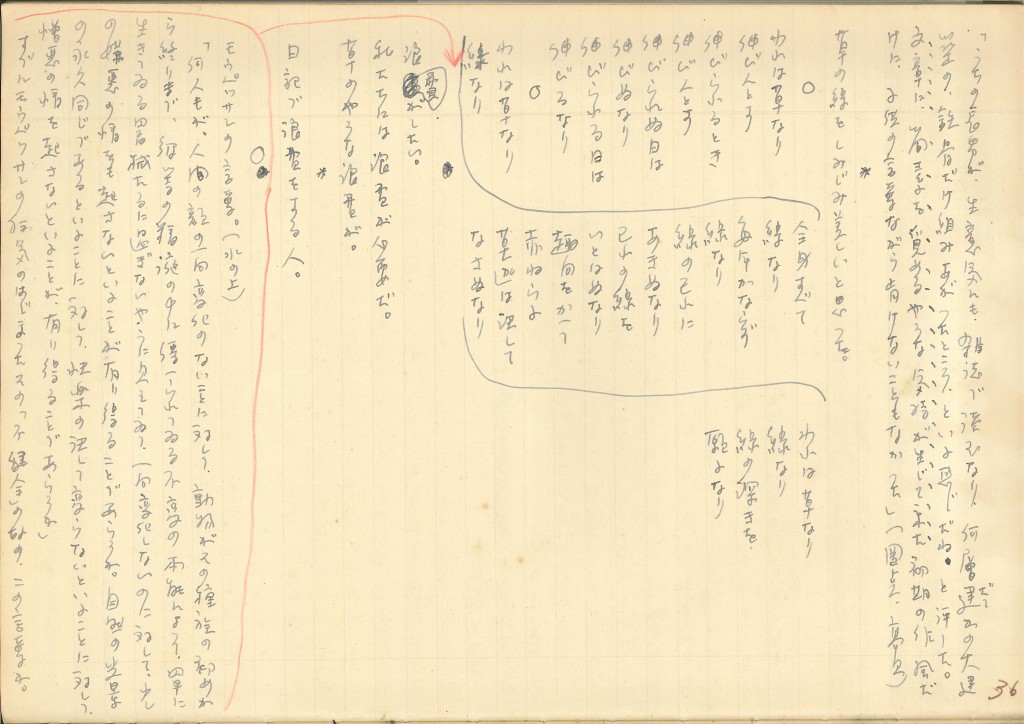 「うちの長男が、生意気にも、雑誌で読むなり、何層建かの大建
だて
築の、鉄骨だけ組みあがつたところ、といふ感じだね。と評した。
文章に、　　　　やうな気持が生じて来た初期の作風だ
けに、子供の言葉ながら肯けないこともなかつた」（圏点、高見）
＊
草の緑をしみじみ美しいと思つた。
○
われは草なり
伸びんとす
伸びられるとき
伸びんとす
伸びられぬ日は
伸びぬなり
伸びられる日は
伸びるなり
○
われは草なり
緑なり
全身すべて
緑なり
毎年かならず
緑なり
緑の己れに
あきぬなり
己れの緑を
いとはぬなり
趣向をかへて
赤ねらよ
草がは決して
なさぬなり
われは草なり
緑なり
緑の深きを
願ふなり
浪費がしたい。
私たちには浪費が必要だ。
草のやうな浪費が。
＊
日記で浪費をする人。
○
モウパッサンの言葉。（水の上）
「何人もが、人間の顔の一向変化のないことに対して、動物がその種族の初めか
ら終りまで、彼等の　　の中に　　られてゐる不変の本能により、単に
生きてゐる　　たるに過ぎないやうに見えてゐて、一向変化しないのに対して、少し
の嫌悪の情をも起さないといふことが有り得ることであらうか。自然の光景
の永久同じであるといふことに対して、快楽の決して変らないといふことに対して、
憎悪の情を起さないといふことが、有り得ることであらうか」
すでにモウパッサンの狂気のはじまつたその「不健全」のなかの、この言葉か。
36